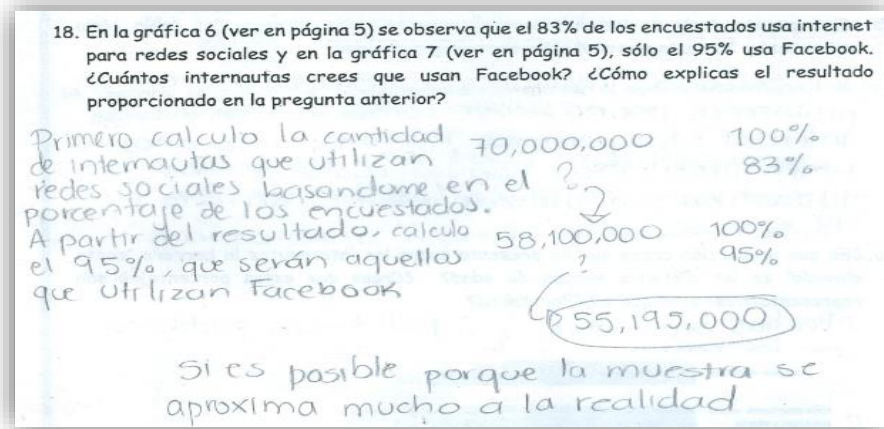 18. En la gráfica 6 (ver en página 5) se observa que el 83% de los encuestados usa internet
para redes sociales y en la gráfica 7 (ver en página 5), sólo el 95% usa Facebook.
¿Cuántos internautas crees que usan Facebook? ¿Cómo explicas el resultado
proporcionado en la pregunta anterior?
Primero calculo la cantidad 70,000,000 100%
de internautas que utilizan ? 83%
redes sociales basandome en el
porcentaje de los encuestados.
A partir del resultado, calculo 58,100,000 100%
el 95%, que serán aquellos ? 95%
que utilizan Facebook
55,195,000
Si es posible porque la muestra se
aproxima mucho a la realidad